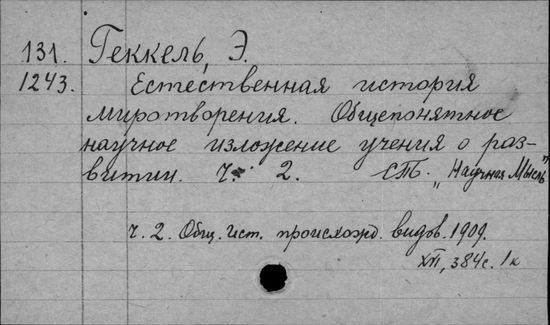 131. Геккель, Э.
1243. Естественная история
миротворения. Общепонятное
научное изложение учения о раз-
витии. Ч. 2. СПб. „Научная Мысль"
ч. 2. Общ. ист. происхожд. видов. 1909.
XII, 384 с. 1 к